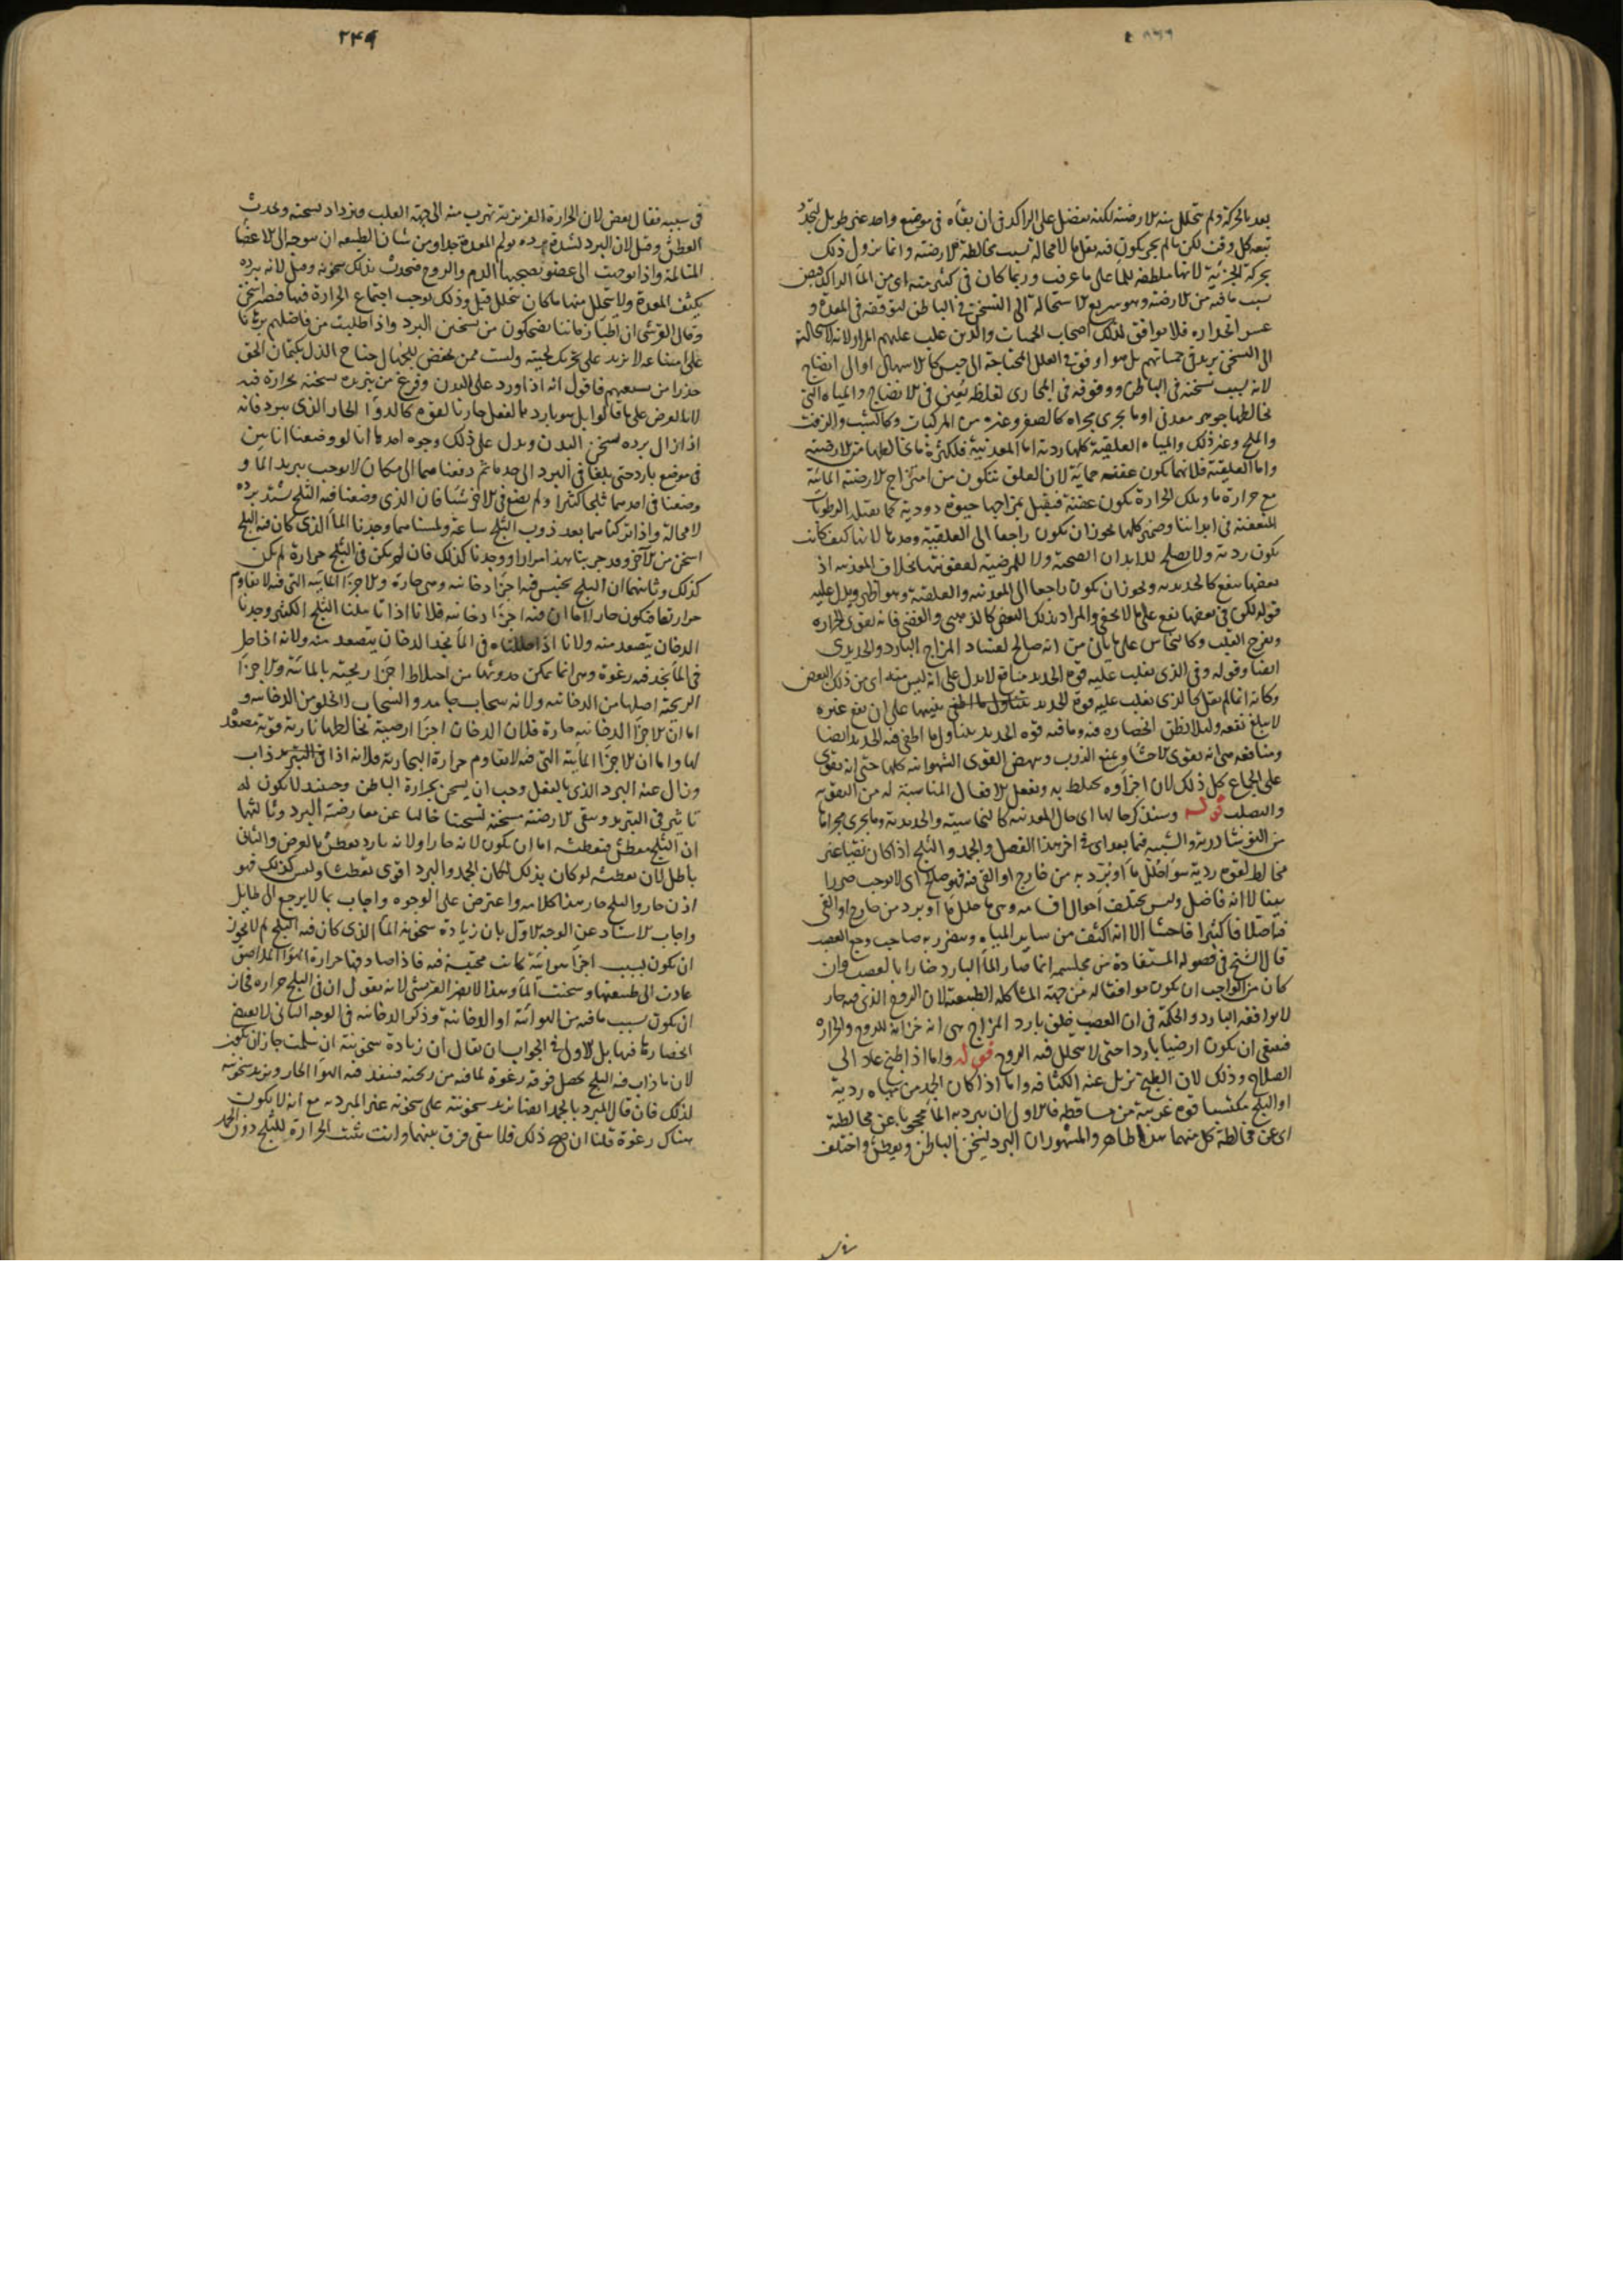 ٢٤٩
بعد بالحركة ولم يتحلل منه الارضية لكنه يفضل على الراكد في ان بقاه في موضع واحد غير طويل لتجدد
بحركة الجرية لانها ملطفة للماء على ما عرفت وربما كان في كثير منه اى من الماء الراكد قبض
بسبب ما فيه من الارضية وهو سريع الاستحالة الى التسخن في الباطن لتوقفه في المعدة و
عسر انحداره فلا يوافق لذلك اصحاب الحميات والذين غلب عليهم المرار لانه لاستحالته
الى التسخن يزيد في حمياتهم بل هو اوفق في العلل المحتاجة الى حبس كالاسهال او الى انضاج
لانه بسبب تسخنه في الباطن ووقوفه في المجارى لغلظه يعين في الانضاج والمياه التى
يخالطها جوهر معدنى او ما يجرى مجراه كالصفر وغيره من المركبات وكالشب والزفت
والملح وغير ذلك والمياه العلقية كلها ردية اما المعدنية فلكثرة ما يخالطها من الارضية
واما العلقية فلانها يكون عفنة حمائية لان العلق يتكون من امتزاج الارضية المائية
مع حرارة ما وبتلك الحرارة يكون عفنة فيقبل بمزاجها حيوة دودية كما يقبله الرطوبات
المتعفنة في ابداننا وضمير كلها يجوز ان يكون راجعا الى العلقية وحدها لانها كيف كانت
يكون ردية ولا يصلح للابدان الصحية ولا للمرضية لعفونتها بخلاف المعدنية اذ
بعضها ينفع كالحديدية ويجوز ان يكون راجعا الى المعدنية والعلقية وهو اظهر ويدل عليه
قوله لكن في بعضها نفع على ما لا يخفى والمراد بذلك البعض كالذهبى والفضى فانه يقوى الحرارة
ويفرح القلب وكالنحاس على ما ياتى من انه صالح لفساد المزاج البارد والحديدى
ايضا وقوله وفي الذى يغلب عليه قوة الحديد منافع لا يدل على انه ليس منه اى من ذلك البعض
وكانه انما لم يقل كالذى يغلب عليه قوة الحديد تنبيها على ان نفع غيره
لا يبلغ نفعه ولئلا يظن انحصاره فيه وما فيه قوة الحديد يتناول ما اطفى فيه الحديد ايضا
ومنافعه هى انه يقوى الاحشاء ويمنع الذرب وينهض القوى الشهوانية كلها حتى انه يقوى
على الجماع كل ذلك لان اجزاءه يختلط به ويفعل الافعال المناسبة له من التقوية
والتصليب قوله وسنذكر حالها اى حال المعدنية كالنحاسية والحديدية وما يجرى مجراها
من النوشادرية والشبية فيما بعد اى في اخر هذا الفصل والجمد والثلج اذا كان نقيا غير
مخالط لقوة ردية سواء حلل ماء او برد به من خارج او القى فيه فهو صالح اى لا يوجب ضررا
بينا لا انه فاضل وليس يختلف احوال اقسامه وهى ما حلل ماء او برد من خارج او القى
اختلافا كثيرا فاحشا الا انه اكثف من ساير المياه ويتضرر به صاحب وجع العصب
قال الشيخ في فصوله المستفادة من مجلسه انما صار الماء البارد ضارا بالعصب وان
كان من الواجب ان يكون موافقا له من جهة المشاكلة الطبيعية لان الروح الذى فيه حار
لا يوافقه البارد والحكمة في ان العصب خلق بارد المزاج هى انه خزانة للروح والحرارة
فينبغى ان يكون ارضيا باردا حتى لا يتحلل فيه الروح قوله واما اذا طبخ عاد الى
الصلاح وذلك لان الطبخ تزيل عنه الكثافة واما اذا كان الجمد من مياه ردية
او الثلج مكتسبا قوة غريبة من مساقطه فالاولى ان يبرد به الماء محجوبا عن مخالطته
اى عن مخالطة كل منهما هذا ظاهر والمشهور ان البرد يسخن الباطن ويعطش واختلف
في سببه فقال بعض لان الحرارة الغريزية تهرب منه الى جهة القلب ويزداد سخنه ويحدث
العطش وقيل لان البرد لشدة برده يولم المعدة جدا ومن شان الطبيعة ان يتوجه الى الاعضا
المتالمة واذا توجهت الى عضو تصحبها الدم والروح فيحدث بذلك سخونة وقيل لانه ببرده
يكثف المعدة ولا يتحلل منها ما كان يتحلل قبل وذلك يوجب اجتماع الحرارة فيها فيصير اسخن
وقال القرشى ان اطباء زماننا يضحكون من تسخين البرد واذا طلبت من فاضلهم برهانا
على امتناعه لا يزيد على تحريك لحيته ولست ممن يخفض للجهال جناح الذل بكتمان الحق
حذرا من سفههم فاقول انه اذا ورد على البدن وفرغ من تبريده سخنه بحرارة فيه
لا بالعرض على ما قالوا بل هو بارد بالفعل حار بالقوة كالدواء الحار الذى يبرد فانه
اذا زال برده سخن البدن ويدل على ذلك وجوه احدها انا لو وضعنا انائين
في موضع بارد حتى بلغا في البرد الى حد ما ثم دفعناهما الى مكان لا يوجب تبريد الماء و
وضعنا في احدهما ثلجا كثيرا ولم يضع في الاخر شيئا فان الذى وضعنا فيه الثلج يشتد برده
لا محالة واذا تركناهما بعد ذوب الثلج ساعة ولمسناهما وجدنا الماء الذى كان فيه الثلج
اسخن من الاخر وقد جربنا هذا مرارا ووجدناه كذلك فان لم يكن في الثلج حرارة لم يكن
كذلك وثانيهما ان الثلج يحتبس فيه اجزاء دخانية وهى حارة والاجزاء المائية التى فيه لا تقاوم
حرارتها فيكون حارا اما ان فيه اجزاء دخانية فلانا اذا تاملنا الثلج الكثير وجدنا
الدخان يتصعد منه ولانا اذا حللناه في الماء نجد الدخان يتصعد منه ولانه اذا حل
في الماء نجد فيه رغوة وهى انما يمكن حدوثها من اختلاط اجزاء ريحية بالمائية والاجزاء
الريحية اصلها من الدخانية ولانه سحاب جامد والسحاب لا يخلو من الدخانية و
اما ان الاجزاء الدخانية حارة فلان الدخان اجزاء ارضية يخالطها نارية قوية مصعدة
لها واما ان الاجزاء المائية التى فيه لا تقاوم حرارة البخارية فلانه اذا في التبريد ذاب
وزال عنه البرد الذى بالفعل وجب ان يسخن بحرارة الباطن وحينئذ لا يكون له
تاثير في التبريد ويبقى الارضية مسخنة تسخينا خاليا عن معارضة البرد وثالثها
ان الثلج يعطش فتعطشه اما ان يكون لانه حار او لانه بارد يعطش بالعرض والثانى
باطل لان تعطشه لو كان بذلك لكان الجمد والبرد اقوى تعطيشا وليس كذلك فهو
اذن حار والثلج حار هذا كلامه واعترض على الوجوه واجاب بما لا يرجع الى طايل
واجاب الاستاد عن الوجه الاول بان زيادة سخونة الماء الذى كان فيه الثلج لم لا يجوز
ان يكون بسبب اجزاء هوائية كانت محتبسة فيه فاذا صادفها حرارة الهواء الملاصق
عادت الى طبيعتها وسخنت الماء وهذا لا يضر القرشى لانه يقول ان في الثلج حرارة فجاز
ان يكون بسبب ما فيه من الهوائية او الدخانية وذكر الدخانية في الوجه الثانى لا يقتضى
انحصارها فيها بل الاولى في الجواب ان يقال ان زيادة سخونته ان سلمت جاز ان يكون
لان ما ذاب فيه الثلج يحصل فوقه رغوة لما فيه من ريحية فينفذ فيه الهواء الحار ويزيد سخونته
لذلك فان قال المبرد بالجمد ايضا يزيد سخونته على سخونة غير المبرد به مع انه لا يكون
هناك رغوة قلنا ان صح ذلك فلا يبقى فرق بينهما وانت تثبت الحرارة للثلج دون الجمد